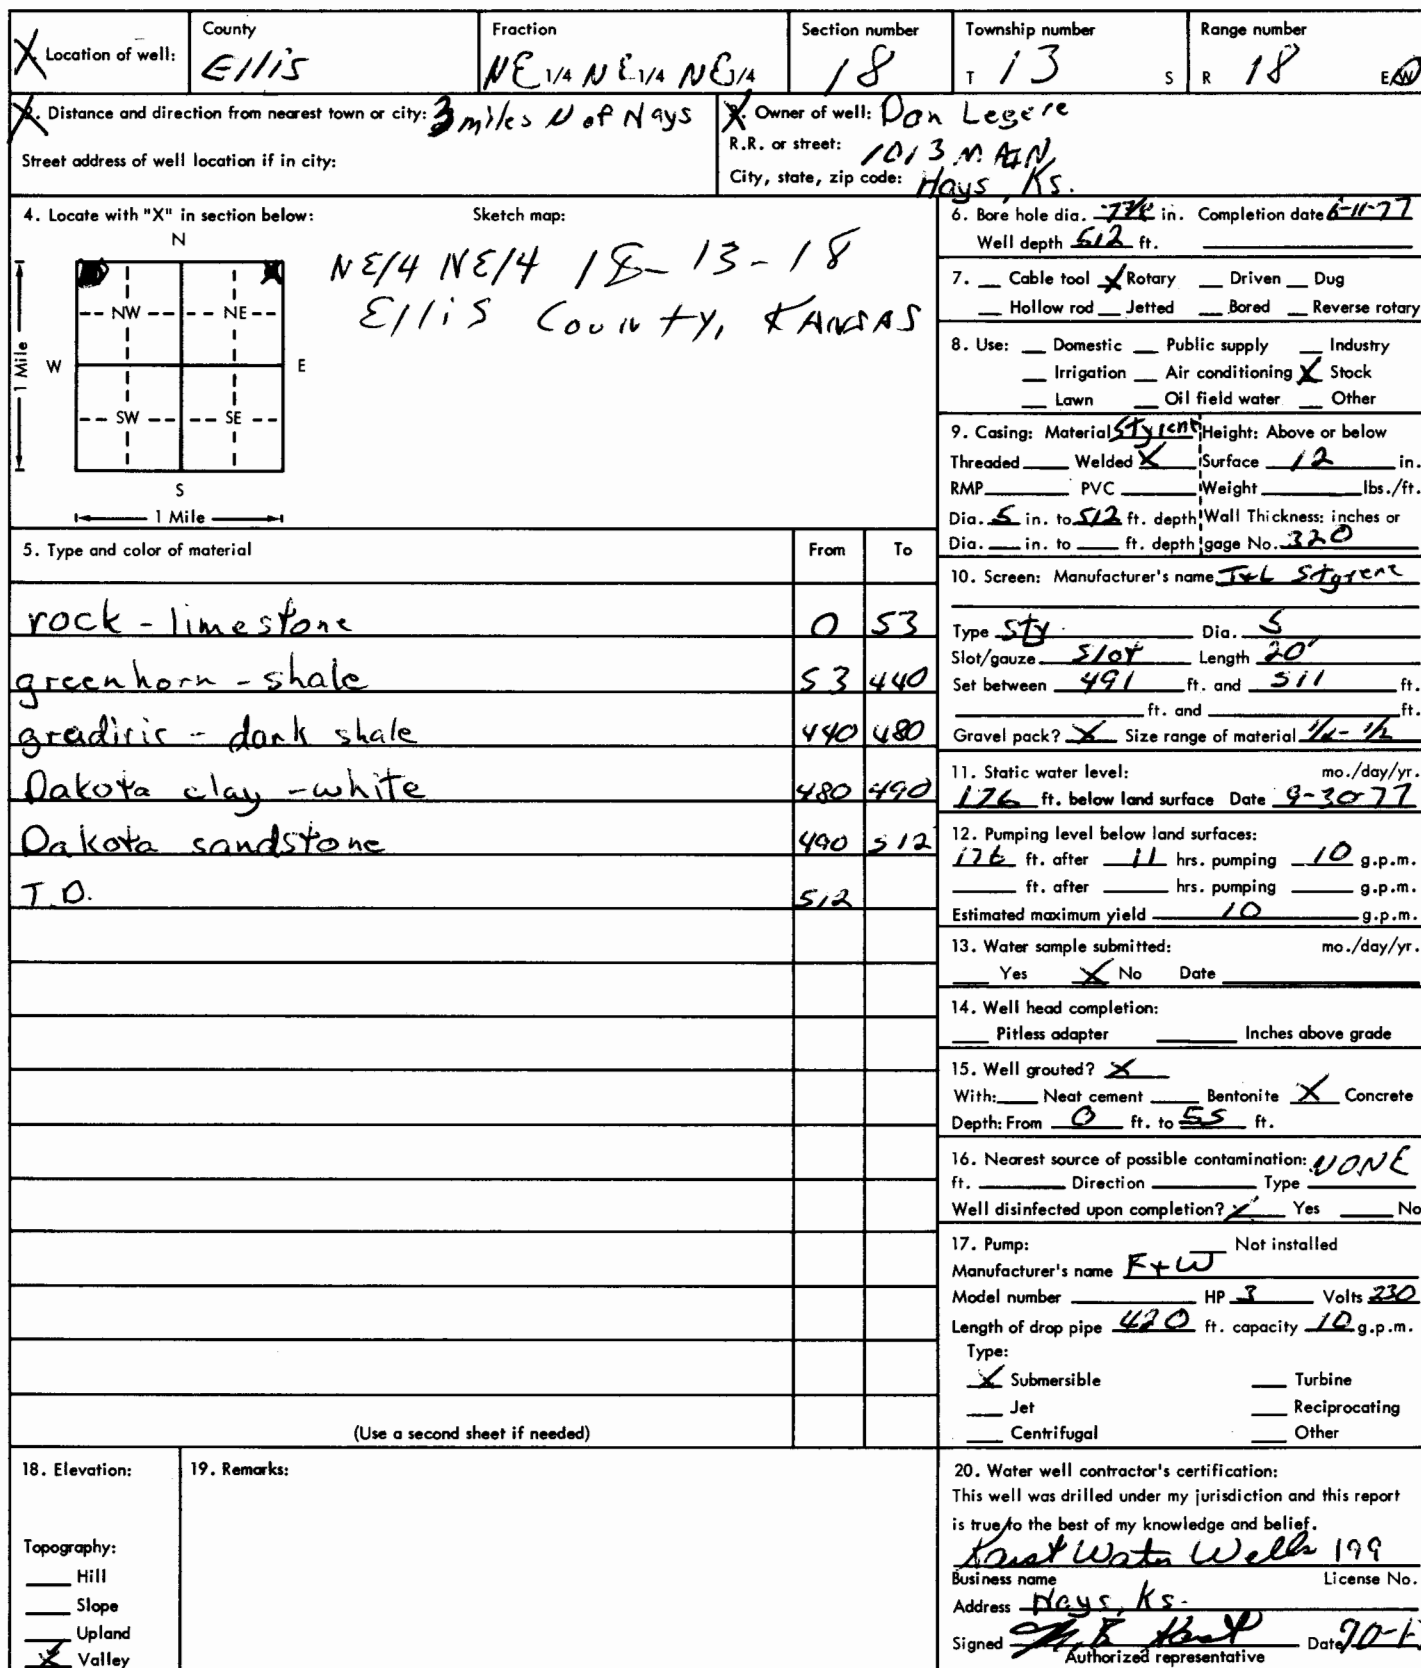 Location of well:
County
Ellis
Fraction
NE 1/4 NE 1/4 NE 1/4
Section number
18
Township number
T 13 S
Range number
R 18 E/W
2. Distance and direction from nearest town or city: 3 miles N of Hays
Street address of well location if in city:
3. Owner of well: Don Legere
R.R. or street: 1013 MAIN
City, state, zip code: Hays, Ks.
4. Locate with "X" in section below:
Sketch map:
N
NW
NE
W
E
SW
SE
S
1 Mile
1 Mile
NE/4 NE/4 18-13-18
Ellis County, KANSAS
5. Type and color of material From To
rock - limestone 0 53
greenhorn - shale 53 440
gradiric - dark shale 440 480
Dakota clay - white 480 490
Dakota sandstone 490 512
T.D. 512
(Use a second sheet if needed)
6. Bore hole dia. 7 7/8 in. Completion date 6-11-77
Well depth 512 ft.
7. Cable tool X Rotary Driven Dug
Hollow rod Jetted Bored Reverse rotary
8. Use: Domestic Public supply Industry
Irrigation Air conditioning X Stock
Lawn Oil field water Other
9. Casing: Material Height: Above or below
Threaded Welded X Surface 12 in.
RMP PVC Weight lbs./ft.
Dia. 5 in. to 512 ft. depth Wall Thickness: inches or
Dia. in. to ft. depth gage No. 320
10. Screen: Manufacturer's name T+L Styrene
Type sty Dia. 5
Slot/gauze Slot Length 20'
Set between 491 ft. and 511 ft.
ft. and ft.
Gravel pack? X Size range of material
11. Static water level: mo./day/yr.
176 ft. below land surface Date 9-30-77
12. Pumping level below land surfaces:
176 ft. after 11 hrs. pumping 10 g.p.m.
ft. after hrs. pumping g.p.m.
Estimated maximum yield 10 g.p.m.
13. Water sample submitted: mo./day/yr.
Yes X No Date
14. Well head completion:
Pitless adapter Inches above grade
15. Well grouted? X
With: Neat cement Bentonite X Concrete
Depth: From 0 ft. to 55 ft.
16. Nearest source of possible contamination: NONE
ft. Direction Type
Well disinfected upon completion? Yes No
17. Pump: Not installed
Manufacturer's name F+W
Model number HP 3 Volts 230
Length of drop pipe 420 ft. capacity 10 g.p.m.
Type:
X Submersible Turbine
Jet Reciprocating
Centrifugal Other
18. Elevation:
Topography:
Hill
Slope
Upland
X Valley
19. Remarks:
20. Water well contractor's certification:
This well was drilled under my jurisdiction and this report
is true to the best of my knowledge and belief.
Karst Water Wells 199
Business name License No.
Address Hays, Ks.
Signed Date
Authorized representative